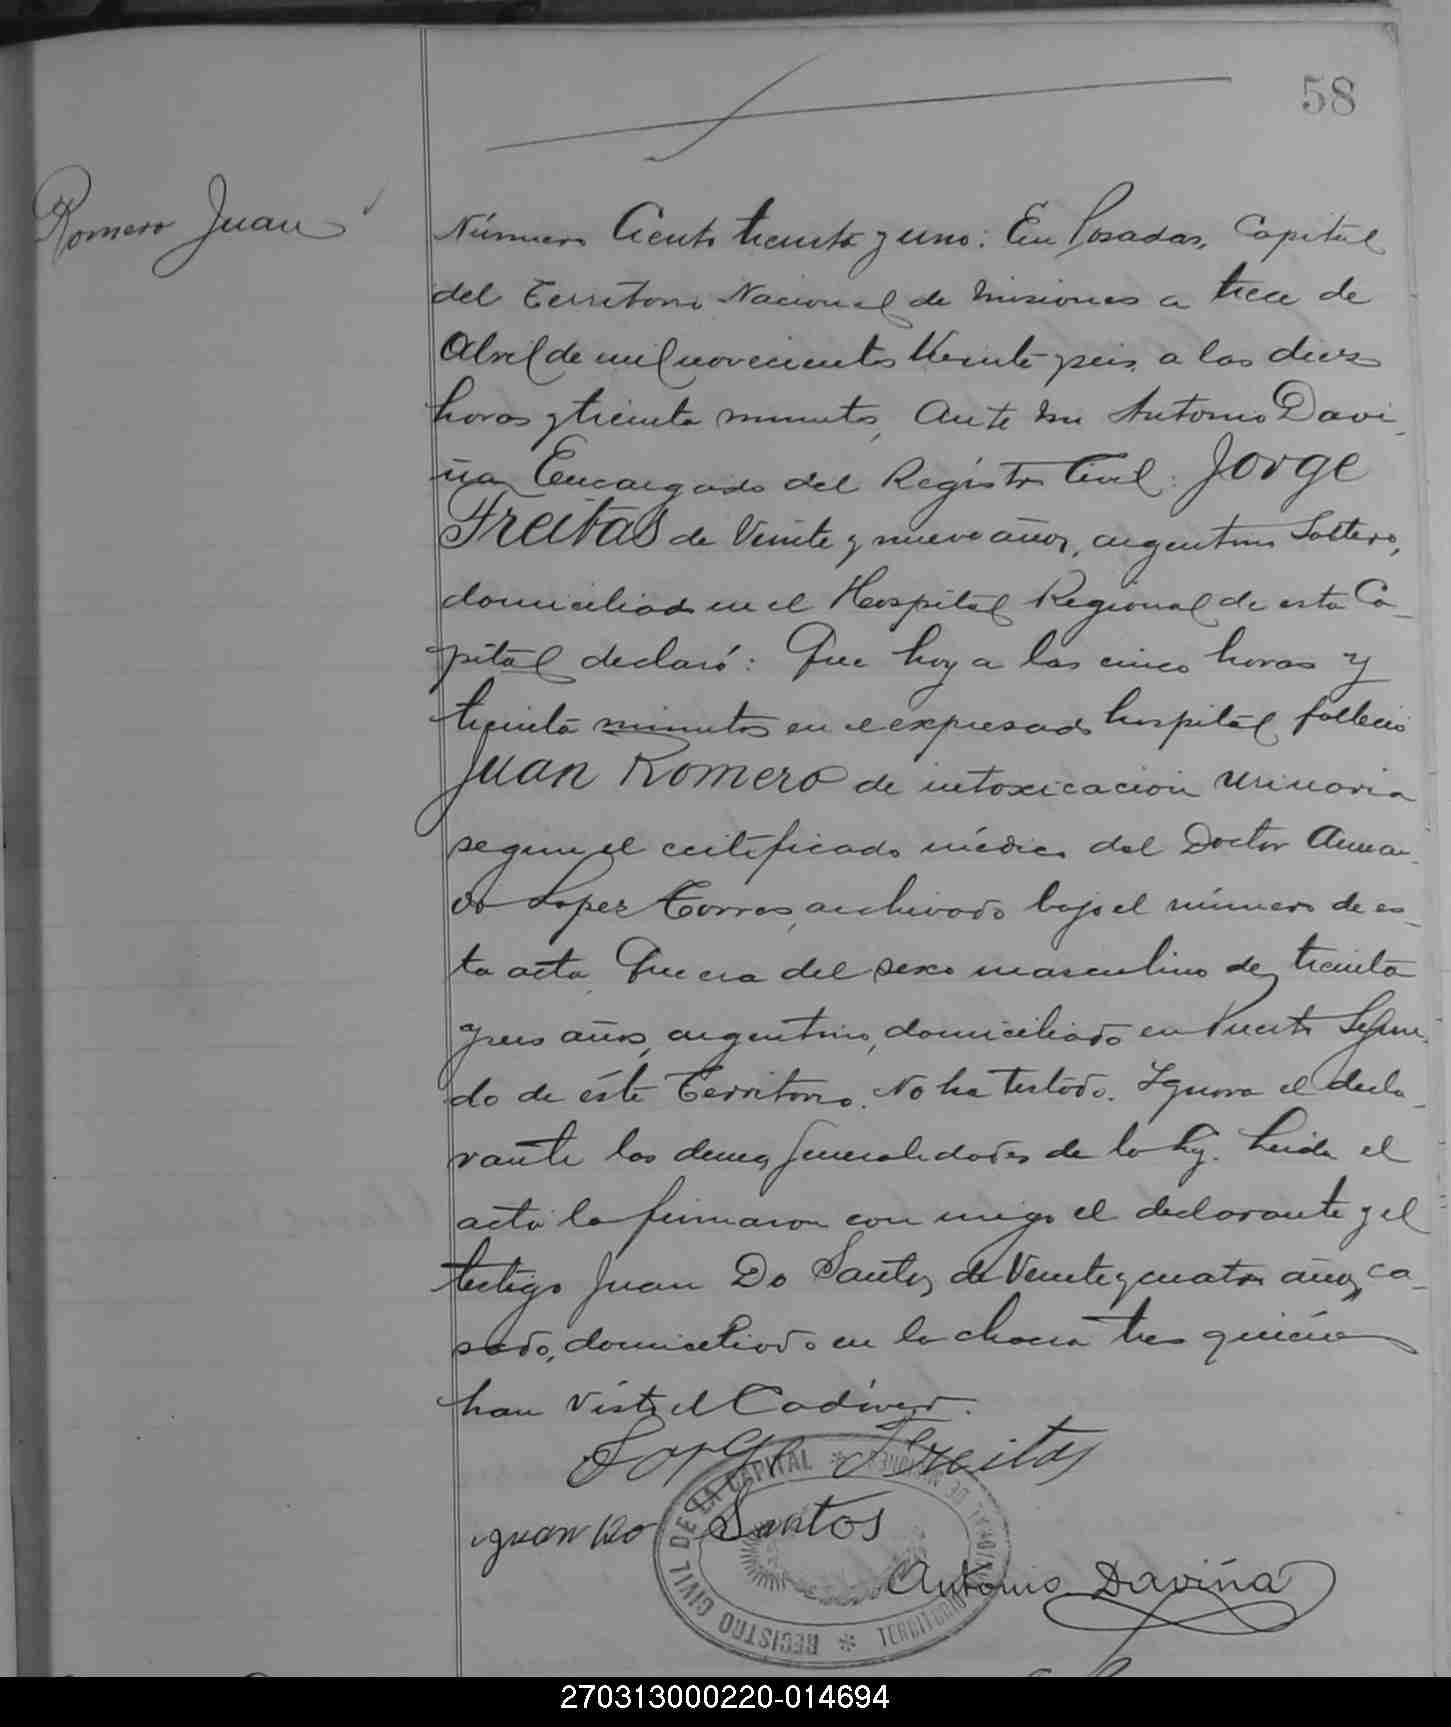 58
Romero Juan
Número Ciento treinta y uno: En Posadas, Capital
del Territorio Nacional de Misiones a trece de
Abril de mil novecientos Veinte y seis, a las diez
horas y treinta minutos, Ante mi Antonio Davi-
ña, Encargado del Registro Civil: Jorge
Freitas de Veinte y nueve años, argentino Soltero,
domiciliado en el Hospital Regional de esta Ca-
pital declaró: Que hoy a las cinco horas y
treinta minutos en el expresado hospital falleció
Juan Romero de intoxicación urinaria
segun el certificado médico del Doctor Arman-
do Lopez Torres, archivado bajo el número de es-
ta acta. Que era del sexo masculino de treinta
y seis años, argentino, domiciliado en Puerto Segun-
do de éste Territorio. No ha testado. Ignora el decla-
rante las demas generalidades de la ley. Leida el
acta la firmaron con migo el declarante y el
testigo Juan Do Santos, de Veinte y cuatro años, ca-
sado, domiciliado en la chacra tres quiénes
han visto el Cadáver.
Jorge Freitas
Juan Do Santos
Antonio Daviña
REGISTRO CIVIL DE LA CAPITAL * TERRITORIO NACIONAL DE MISIONES *
270313000220-014694